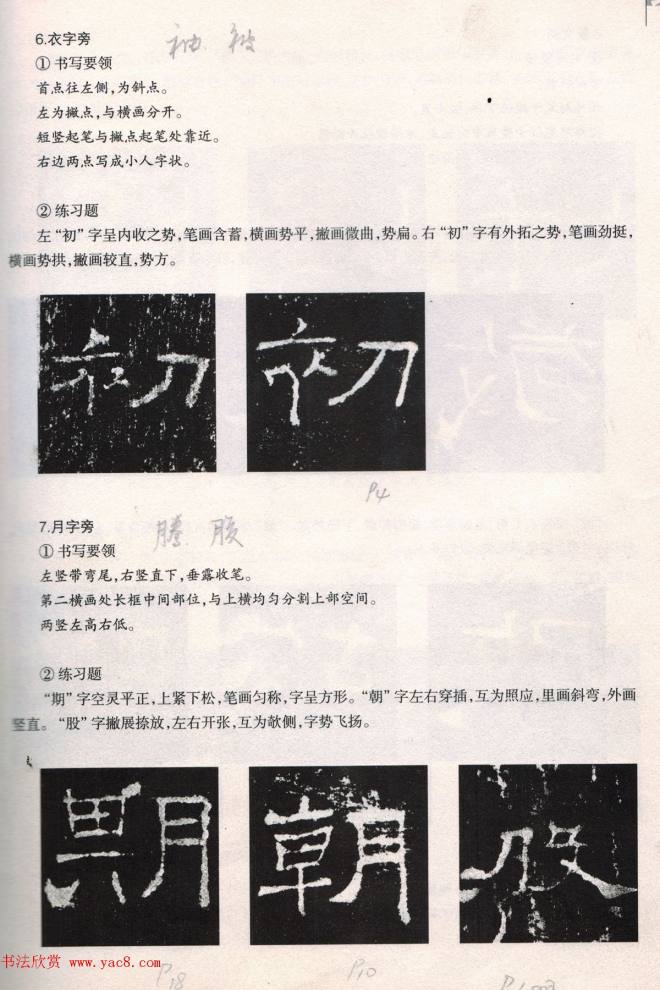 6.衣字旁
袖 被
① 书写要领
首点往左侧,为斜点。
左为撇点,与横画分开。
短竖起笔与撇点起笔处靠近。
右边两点写成小人字状。
② 练习题
左“初”字呈内收之势,笔画含蓄,横画势平,撇画微曲,势扁。右“初”字有外拓之势,笔画劲挺,
横画势拱,撇画较直,势方。
初
初
P4
7.月字旁
腾 股
① 书写要领
左竖带弯尾,右竖直下,垂露收笔。
第二横画处长框中间部位,与上横均匀分割上部空间。
两竖左高右低。
② 练习题
“期”字空灵平正,上紧下松,笔画匀称,字呈方形。“朝”字左右穿插,互为照应,里画斜弯,外画
竖直。“股”字撇展捺放,左右开张,互为欹侧,字势飞扬。
期
朝
股
P18
P10
书法欣赏 www.yac8.com